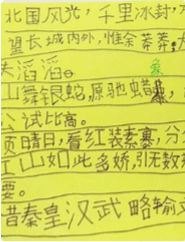 北国风光,千里冰封,万
望长城内外,惟余莽莽;大
失滔滔。
象
山舞银蛇,原驰蜡
公试比高。
须晴日,看红装素裹,分
江山如此多娇,引无数
要。
惜秦皇汉武 略输文